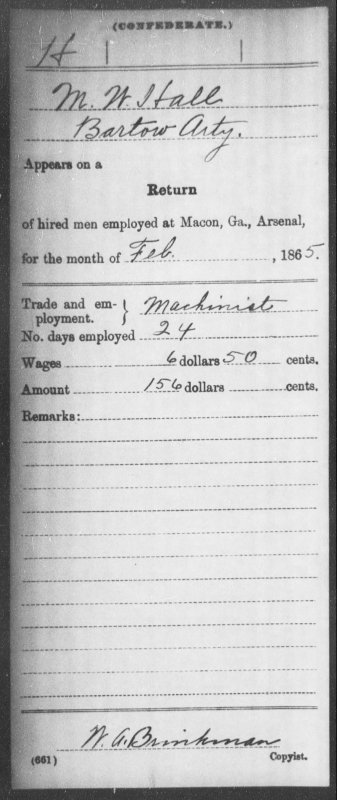 (CONFEDERATE.)
H
M. W. Hall
Bartow Arty.
Appears on a
Return
of hired men employed at Macon, Ga., Arsenal,
for the month of Feb. , 1865.
Trade and em-
ployment. } Machinist
No. days employed 24
Wages 6 dollars 50 cents.
Amount 156 dollars cents.
Remarks:
W. A. Brinkman
(661) Copyist.